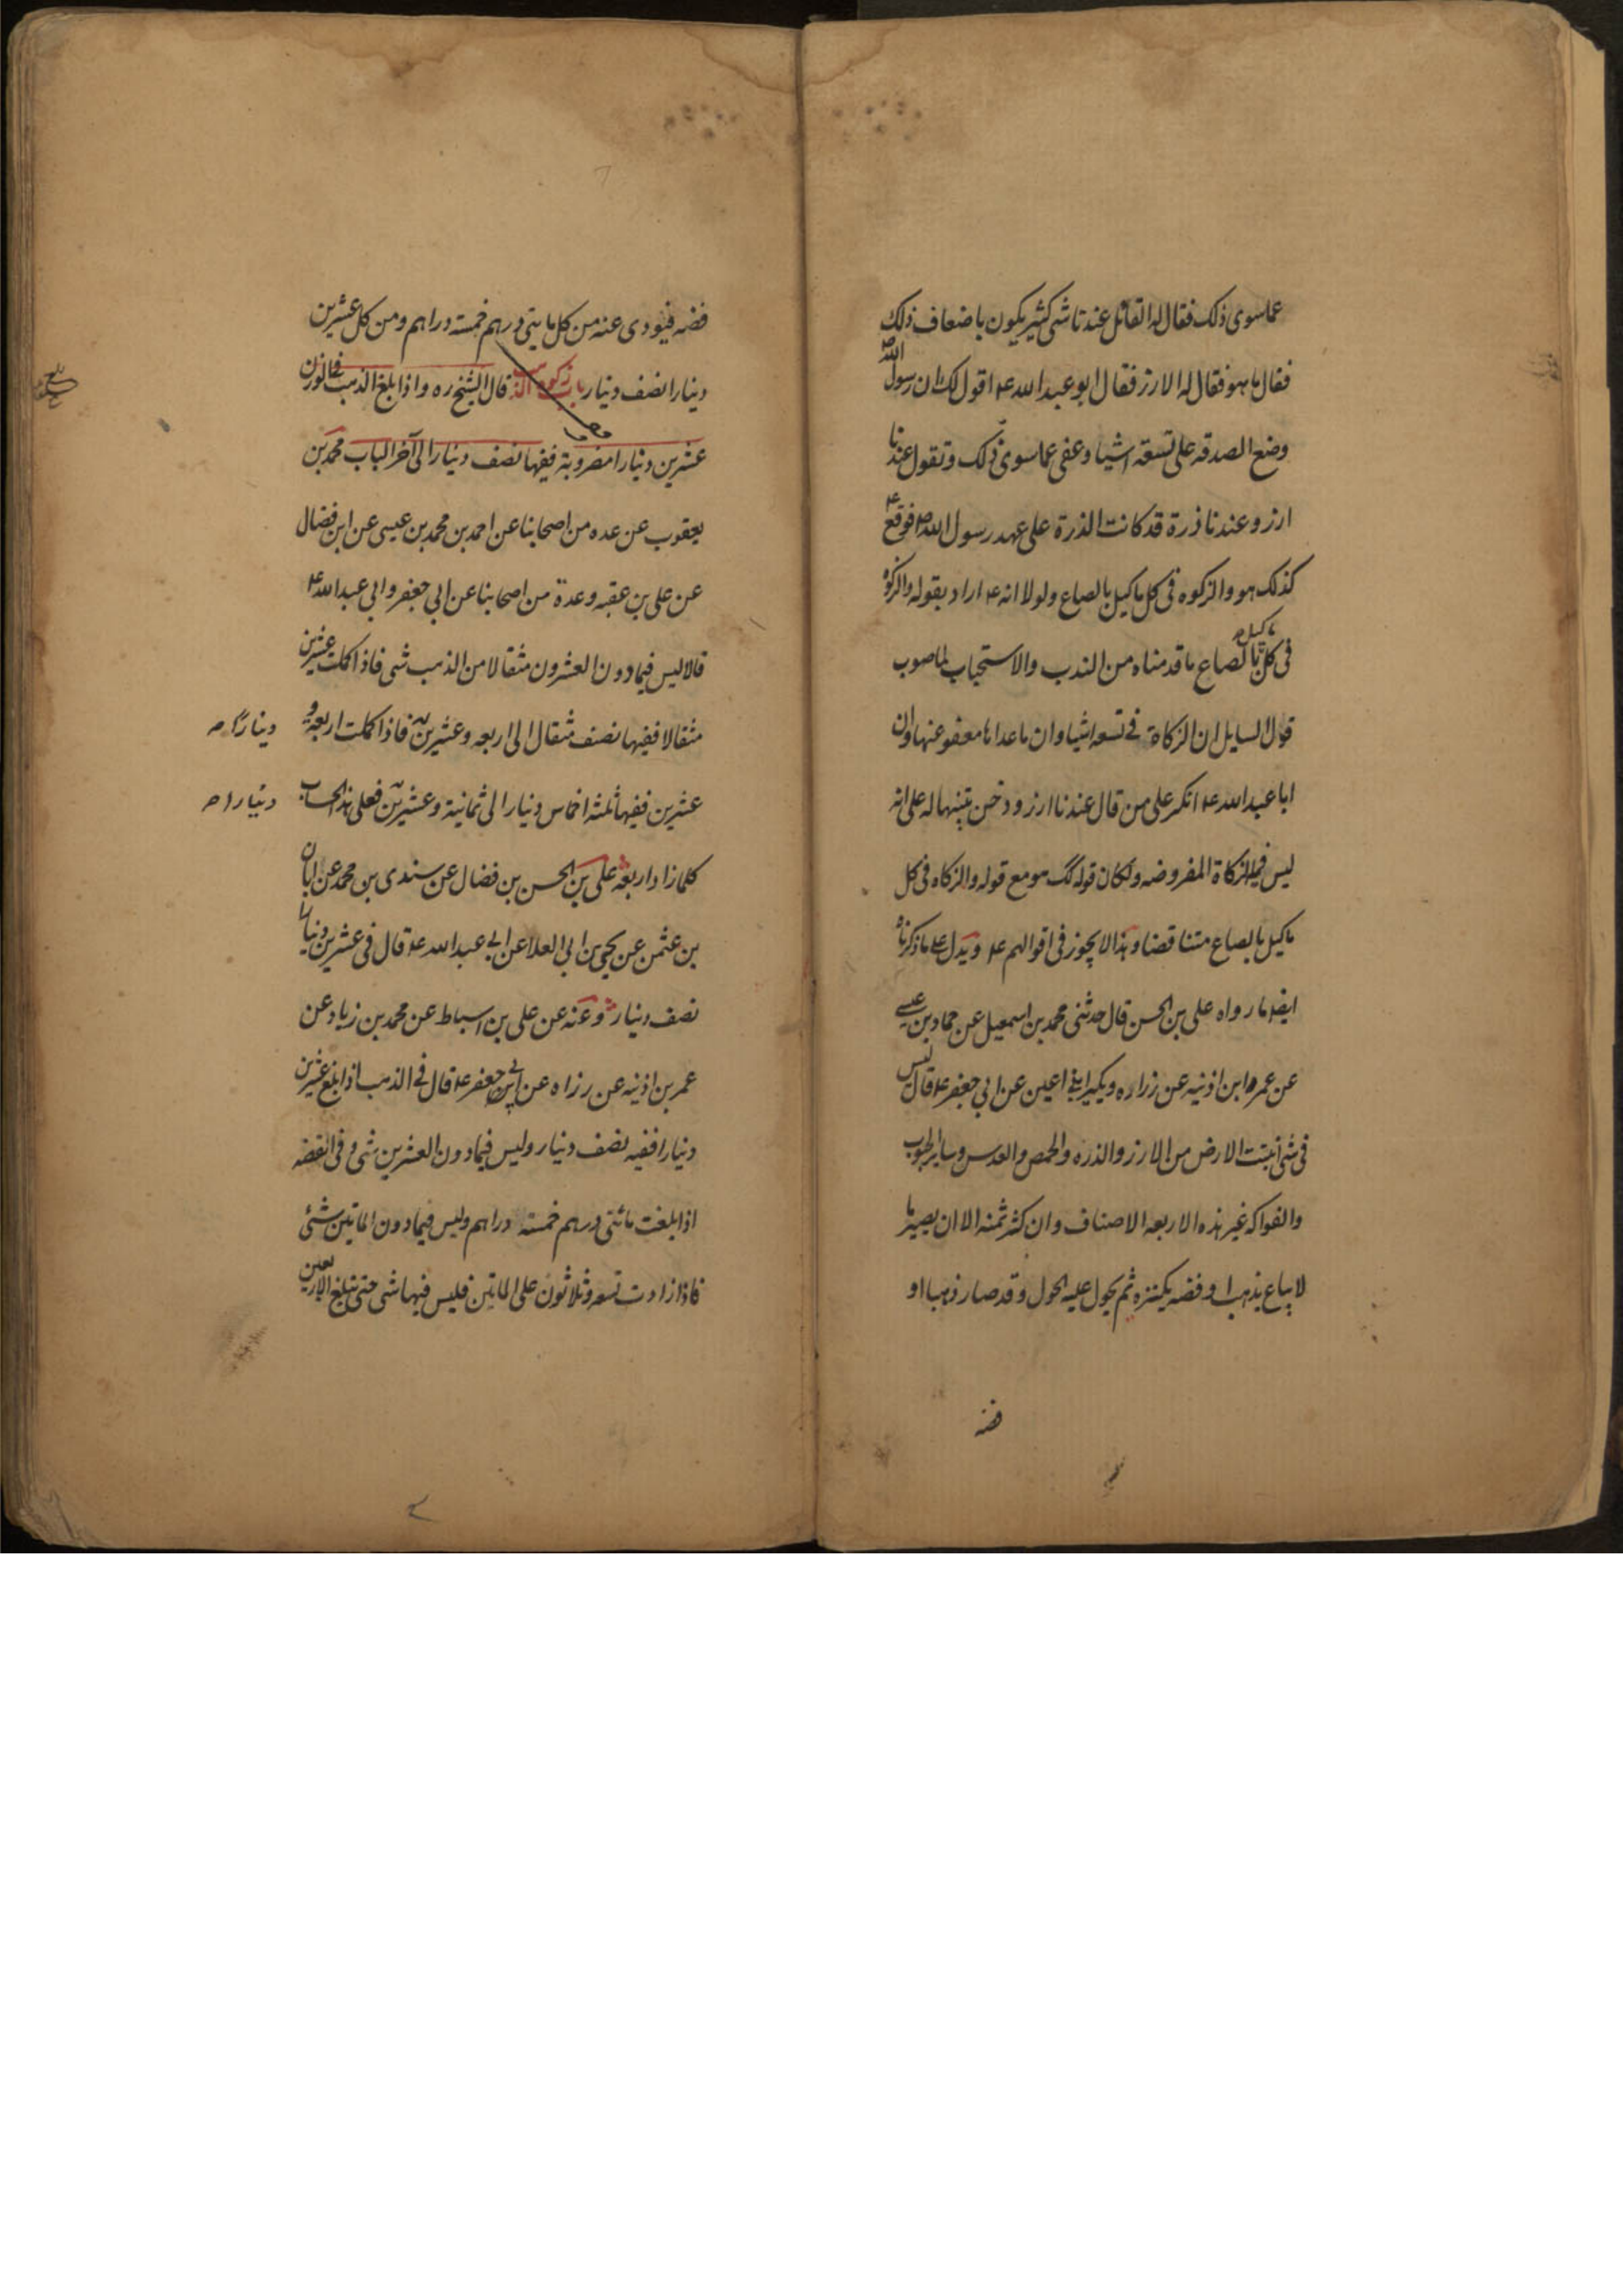 عما سوى ذلك فقال له القائل عندنا شى كثير يكون باضعاف ذلك
فقال ما هو فقال له الارز فقال ابو عبد الله ع اقول لك ان رسول الله ص
وضع الصدقه على تسعة اشيا و عفى عما سوى ذلك وتقول عندنا
ارز و عندنا ذرة قد كانت الذرة على عهد رسول الله ص فوقع ع
كذلك هو والزكوه فى كل ما كيل بالصاع ولولا انه ع اراد بقوله والزكوه
فى كل ما كيل بالصاع ما قدمناه من الندب والاستحباب لما صوب
قول السايل ان الزكاة فى تسعه اشيا وان ما عداها معفو عنها وان
ابا عبد الله ع انكر على من قال عندنا ارز و دخن تنبيها له على انه
ليس فيها الزكاة المفروضه ولكان قوله كك هو مع قوله والزكاه فى كل
ما كيل بالصاع متناقضا و هذا لا يجوز فى اقوالهم ع ويدل على ما ذكرناه
ايضا ما رواه على بن الحسن قال حدثنى محمد بن اسمعيل عن حماد بن عيسى
عن عمر ابن اذنيه عن زراره و بكير ابنى اعين عن ابى جعفر ع قال ليس
فى شى انبتت الارض من الارز والذره والحمص والعدس وساير الحبوب
والفواكه غير هذه الاربعه الاصناف وان كثر ثمنه الا ان يصير ما
لا يباع بذهب او فضه يكنزه ثم يحول عليه الحول و قد صار ذهبا او
فضه
فضه فيؤدى عنه من كل مايتى درهم خمسة دراهم ومن كل عشرين
دينارا نصف دينار باب زكوة الذهب قال الشيخ ره و اذا بلغ الذهب فى الوزن
عشرين دينارا مضروبة ففيها نصف دينار الى آخر الباب محمد بن
يعقوب عن عده من اصحابنا عن احمد بن محمد بن عيسى عن ابن فضال
عن على بن عقبه وعدة من اصحابنا عن ابى جعفر وابى عبد الله ع
قالا ليس فيما دون العشرون مثقالا من الذهب شى فاذا كملت عشرين
مثقالا ففيها نصف مثقال الى اربعه وعشرين فاذا كملت اربعة و
دينارا ص
عشرين ففيها ثلثة اخماس دينار الى ثمانية وعشرين فعلى هذا الحساب
دينارا ص
كلما زاد اربعة على بن الحسن بن فضال عن سندى بن محمد عن ابان
بن عثمن عن يحيى بن ابى العلا عن ابى عبد الله ع قال فى عشرين دينارا
نصف دينار و عنه عن على بن اسباط عن محمد بن زياد عن
عمر بن اذنيه عن رزاه عن ابى جعفر ع قال فى الذهب اذا بلغ عشرين
دينارا ففيه نصف دينار وليس فيما دون العشرين شى و فى الفضه
اذا بلغت مائتى درهم خمسة دراهم وليس فيما دون الماتين شئ
فاذا زادت تسعه وثلاثون على الماتين فليس فيها شى حتى تبلغ الاربعين